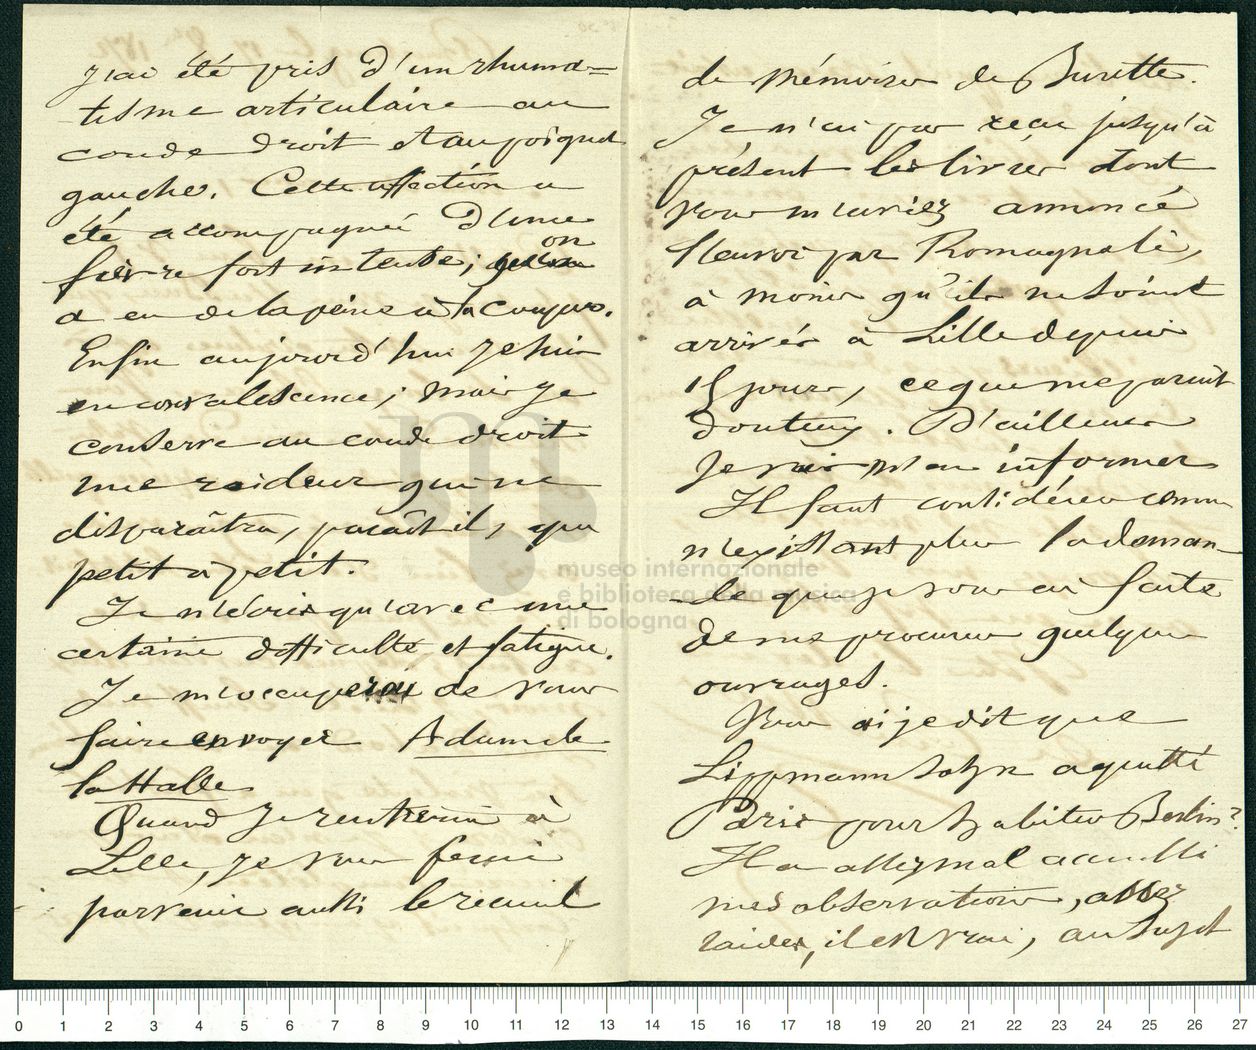 j'ai été pris d'un rhuma=
tisme articulaire au
coude droit et au poignet
gauche. Cette affection a
été accompagnée d'une
fièvre fort intense; on
a eu de la peine à la couper.
Enfin aujourd'hui je suis
en convalescence; mais je
conserve au coude droit
une raideur qui ne
disparaîtra, paraît il, que
petit à petit.
Je n'écris qu'avec une
certaine difficulté et fatigue.
Je m'occuperai de vous
faire envoyer Adam de
la Halle
Quand je rentrerai à
Lille, je vous ferai
parvenir aussi le recueil
de Mémoires de Burette.
Je n'ai pas reçu jusqu'à
présent les livres dont
vous m'aviez annoncé
l'envoi par Romagnoli,
à moins qu'ils ne soient
arrivés à Lille depuis
15 jours, ce qui me paraît
douteux. D'ailleurs
je vais m'en informer
Il faut considérer comme
n'existant plus la deman-
de que je vous ai faite
de me procurer quelques
ouvrages.
Vous ai je dit que
Lippmannsohn a quitté
Paris pour habiter Berlin?
Il a assez mal accueilli
mes observations, assez
raides, il est vrai, au sujet
museo internazionale
e biblioteca della musica
di bologna
0 1 2 3 4 5 6 7 8 9 10 11 12 13 14 15 16 17 18 19 20 21 22 23 24 25 26 27